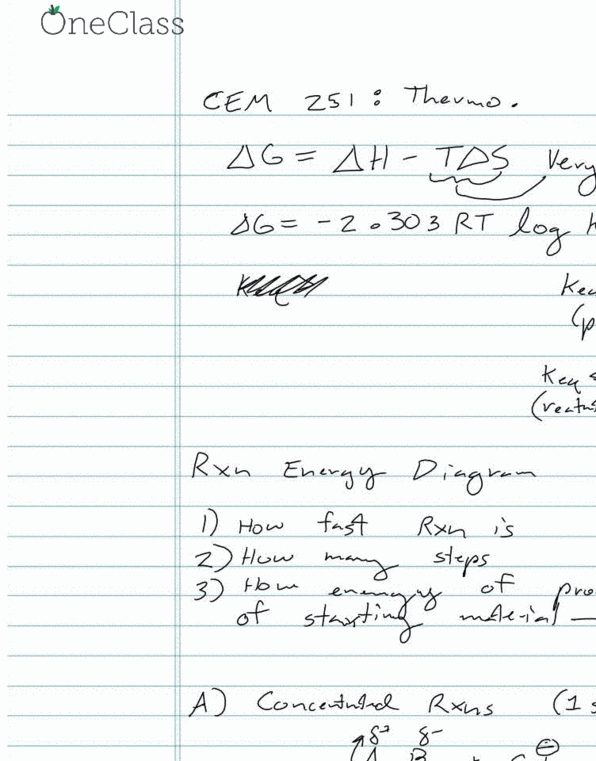 OneClass
CEM 251: Thermo.
ΔG = ΔH - TΔS Very
ΔG = -2.303 RT log
Keq
Keq
Rxn Energy Diagram
1) How fast Rxn is
2) How many steps
3) How enenrgy of
of starting material —
A) Concentrated Rxns (1 s
δ+ δ-
A B